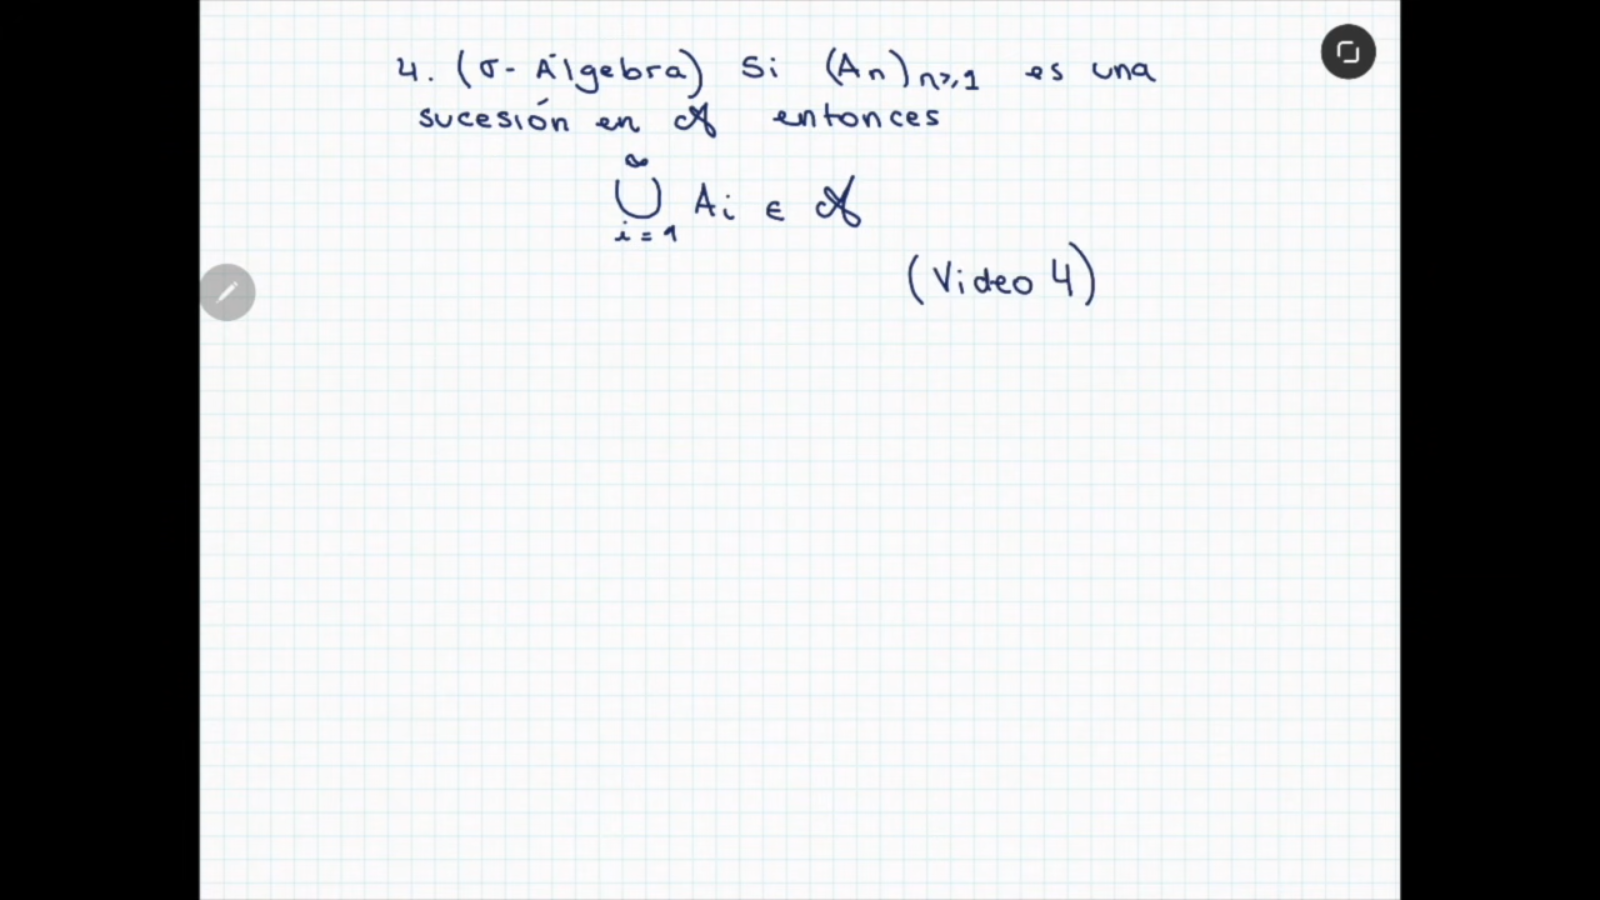 4. (σ- Álgebra) Si (An)n≥1 es una
sucesión en 𝒜 entonces
∞
⋃ Ai ∈ 𝒜
i = 1
(Video 4)